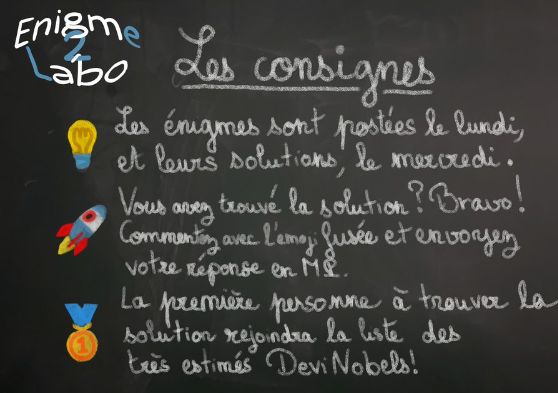 Enigme
2
Labo
Les consignes
Les énigmes sont postées le lundi,
et leurs solutions, le mercredi.
Vous avez trouvé la solution? Bravo!
Commentez avec l'emoji fusée et envoyez
votre réponse en M.P.
La première personne à trouver la
solution rejoindra la liste des
très estimés DeviNobels!
1